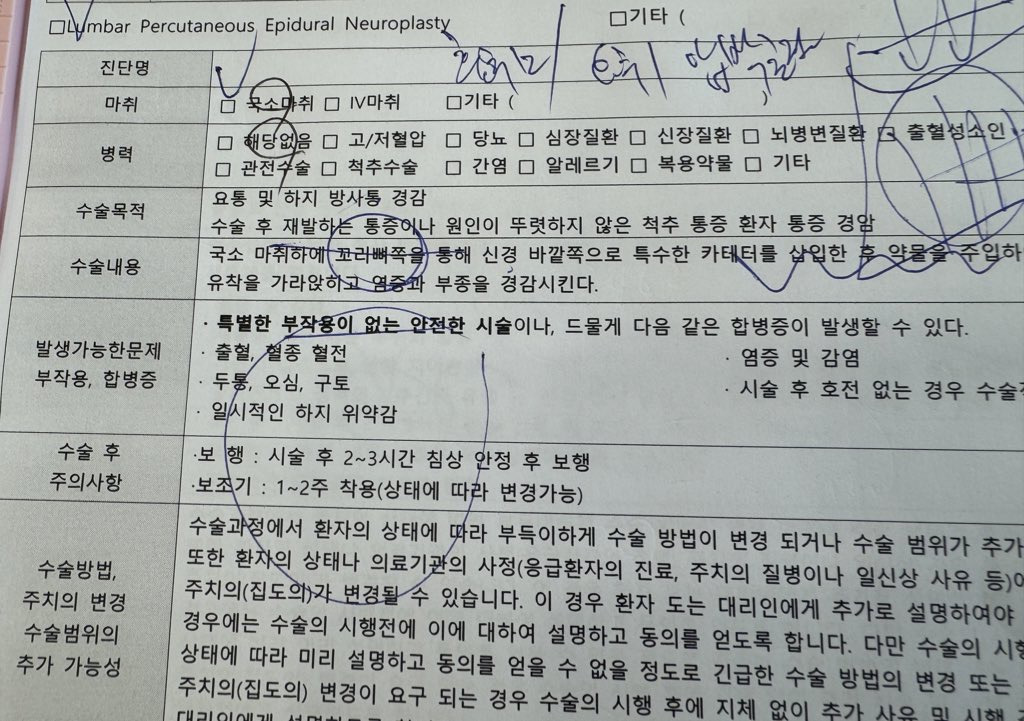 □Lumbar Percutaneous Epidural Neuroplasty □기타 (
진단명
마취 □ 국소마취 □ IV마취 □기타 ( )
병력 □ 해당없음 □ 고/저혈압 □ 당뇨 □ 심장질환 □ 신장질환 □ 뇌병변질환 □ 출혈성소인
□ 관전수술 □ 척추수술 □ 간염 □ 알레르기 □ 복용약물 □ 기타
수술목적 요통 및 하지 방사통 경감
수술 후 재발하는 통증이나 원인이 뚜렷하지 않은 척추 통증 환자 통증 경감
수술내용 국소 마취하에 꼬리뼈쪽을 통해 신경 바깥쪽으로 특수한 카테터를 삽입한 후 약물을 주입하
유착을 가라앉하고 염증과 부종을 경감시킨다.
발생가능한문제 부작용, 합병증
· 특별한 부작용이 없는 안전한 시술이나, 드물게 다음 같은 합병증이 발생할 수 있다.
· 출혈, 혈종 혈전 · 염증 및 감염
· 두통, 오심, 구토 · 시술 후 호전 없는 경우 수술
· 일시적인 하지 위약감
수술 후 주의사항
·보 행 : 시술 후 2~3시간 침상 안정 후 보행
·보조기 : 1~2주 착용(상태에 따라 변경가능)
수술방법, 주치의 변경 수술범위의 추가 가능성
수술과정에서 환자의 상태에 따라 부득이하게 수술 방법이 변경 되거나 수술 범위가 추가
또한 환자의 상태나 의료기관의 사정(응급환자의 진료, 주치의 질병이나 일신상 사유 등)에
주치의(집도의)가 변경될 수 있습니다. 이 경우 환자 도는 대리인에게 추가로 설명하여야
경우에는 수술의 시행전에 이에 대하여 설명하고 동의를 얻도록 합니다. 다만 수술의 시행
상태에 따라 미리 설명하고 동의를 얻을 수 없을 정도로 긴급한 수술 방법의 변경 또는
주치의(집도의) 변경이 요구 되는 경우 수술의 시행 후에 지체 없이 추가 사유 및 시행